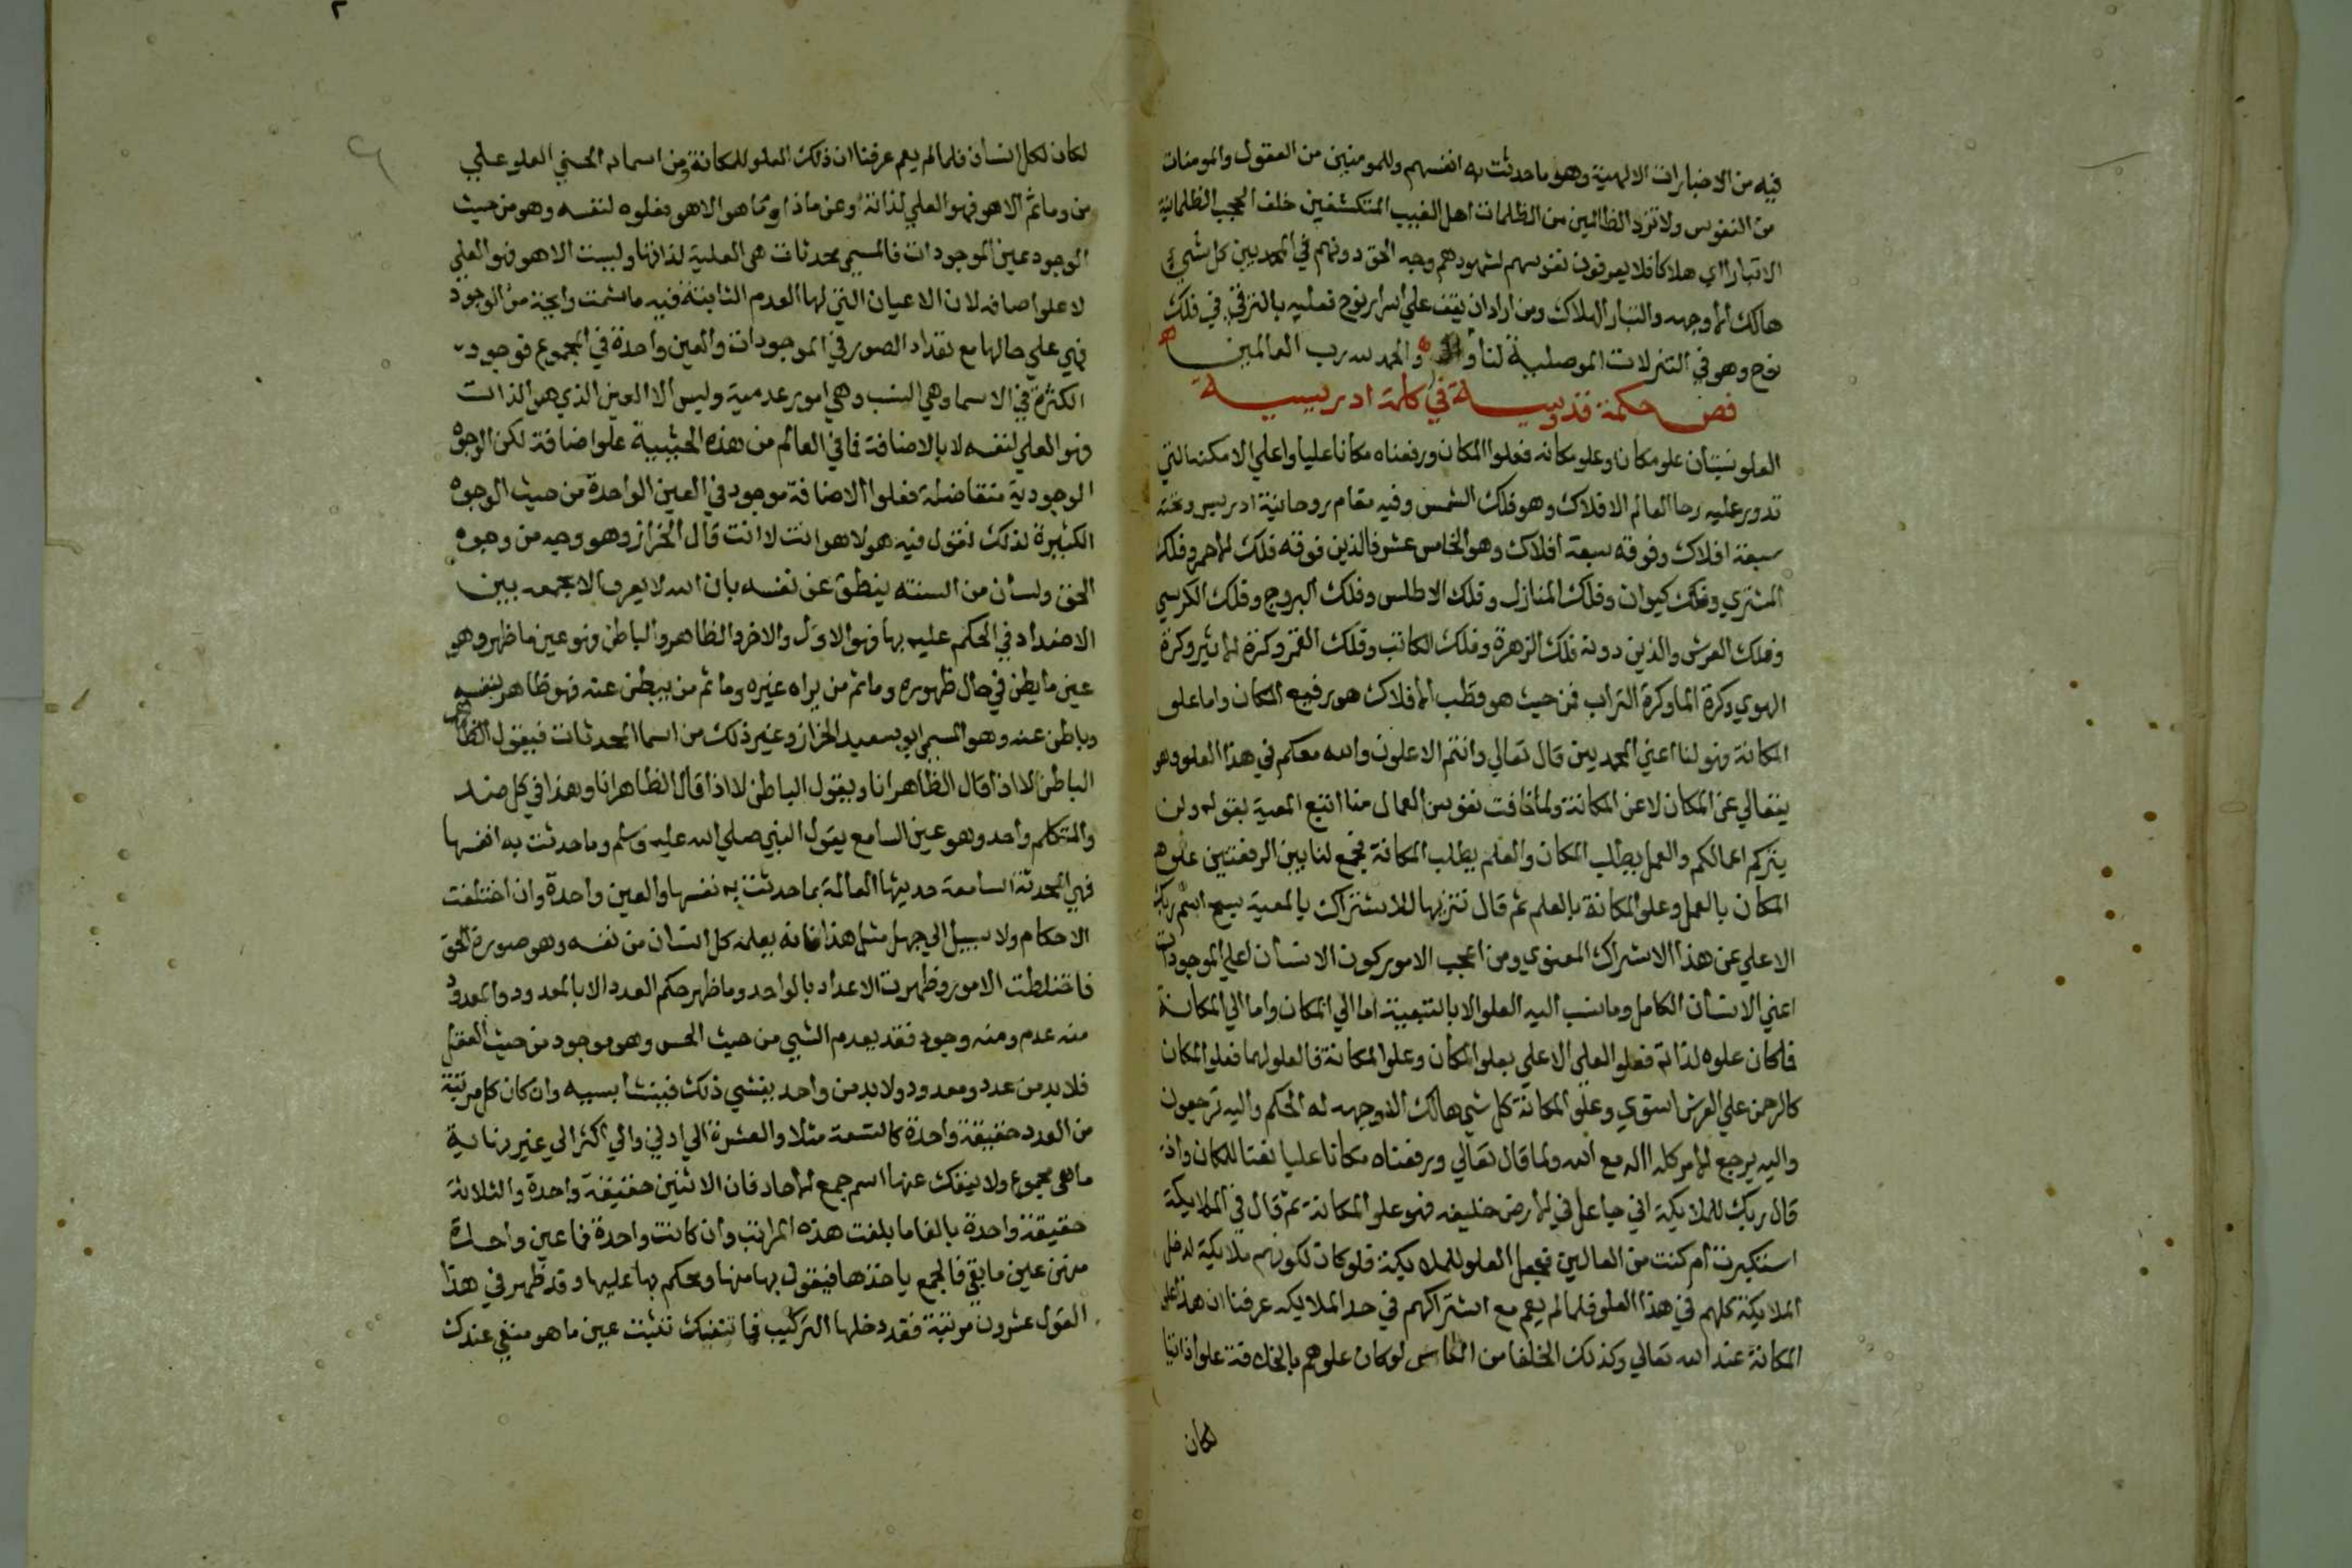 فيه من الاخبارات الالهية وهو ما حدثت به انفسهم وللمومنين من العقول والمومنات
من النفوس ولا تزد الظالمين من الظلمات اهل الغيب المتكشفين خلف الحجب الظلمانية
الا تبارا اي هلاكا فلا يعرفون نفوسهم لشهودهم وجه الحق دونهم في المحمديين كل شي
هالك الا وجهه والتبار الهلاك ومن اراد ان يقف علي اسرار نوح فعليه بالترقي في فلك
نوح وهو في التنزلات الموصلية لنا والحمد لله رب العالمين
فص حكمة قدوسية في كلمة ادريسية
العلو نسبتان علو مكان وعلو مكانه فعلوا المكان ورفعناه مكانا عليا واعلي الامكنه التي
تدور عليه رحا العالم الافلاك وهو فلك الشمس وفيه مقام روحانية ادريس وتحته
سبعة افلاك وفوقه سبعة افلاك وهو الخامس عشر فالذين فوقه فلك الاحمر وفلك
المشتري وفلك كيوان وفلك المنازل وفلك الاطلس وفلك البروج وفلك الكرسي
وفلك العرش والذين دونه فلك الزهرة وفلك الكاتب وفلك القمر وكرة الاثير وكرة
الهوي وكرة الما وكرة التراب فمن حيث هو قطب الافلاك هو رفيع المكان واما علو
المكانة فهو لنا اعني المحمديين قال تعالي وانتم الاعلون والله معكم في هذا العلو وهو
يتعالي عن المكان لا عن المكانة ولما خافت نفوس العمال منا اتبع المعية بقوله ولن
يتركم اعمالكم والعمل يطلب المكان والعلم يطلب المكانة فجمع لنا بين الرفعتين علو
المكان بالعمل وعلو المكانة بالعلم ثم قال تنزيها للاشتراك بالمعية سبح اسم ربك
الاعلي عن هذا الاشراك المعنوي ومن اعجب الامور كون الانسان اعلي الموجودات
اعني الانسان الكامل وما نسب اليه العلو الا بالتبعية اما الي المكان واما الي المكانة
فما كان علوه لذاته فعلو العلي الاعلي بعلو المكان وعلو المكانة فالعلو لهما فعلوا المكان
كالرحمن علي العرش استوي وعلو المكانة كل شي هالك الا وجهه له الحكم واليه ترجعون
واليه يرجع الامر كله االه مع الله ولما قال تعالي ورفعناه مكانا عليا نعتا للمكان واذ
قال ربك للملايكة اني جاعل في الارض خليفه فهو علو المكانة ثم قال في الملايكة
استكبرت ام كنت من العالين فجعل العلو للملايكة فلو كان لكونهم ملايكة لدخل
الملايكة كلهم في هذا العلو فلما لم يعم مع اشتراكهم في حد الملايكه عرفنا ان هذا علو
المكانة عند الله تعالي وكذلك الخلفا من الناس لو كان علوهم بالخلافة علوا ذاتيا
لكان
لكان لكل انسان فلما لم يعم عرفنا ان ذلك العلو للمكانة ومن اسمايه الحسني العلو علي
من وما ثم الا هو فهو العلي لذاته او عن ماذا وما هو الا هو فعلوه لنفسه وهو من حيث
الوجود عين الموجودات فالمسمي محدثات هي العلية لذاتها وليست الا هو فهو العلي
لا علو اضافه لان الاعيان التي لها العدم الثابتة فيه ما شمت رايحة من الوجود
فهي علي حالها مع تعداد الصور في الموجودات والعين واحدة في المجموع فوجود
الكثرة في الاسما وهي النسب وهي امور عدمية وليس الا العين الذي هو الذات
فهو العلي لنفسه لا بالاضافة فما في العالم من هذه الحيثية علو اضافة لكن الوجوه
الوجودية متفاضلة فعلوا الاضافة موجود في العين الواحدة من حيث الوجوه
الكثيرة لذلك نقول فيه هو لا هو انت لا انت قال الخراز وهو وجه من وجوه
الحق ولسان من السنته ينطق عن نفسه بان الله لا يعرف الا بجمعه بين
الاضداد في الحكم عليه بها فهو الاول والاخر والظاهر والباطن فهو عين ما ظهر وهو
عين ما بطن في حال ظهوره وما ثم من يراه غيره وما ثم من يبطن عنه فهو ظاهر لنفسه
وباطن عنه وهو المسمي ابو سعيد الخراز وغير ذلك من اسما المحدثات فيقول الظاهر
الباطن لا اذا قال الظاهر انا ويقول الباطن لا اذا قال الظاهر انا وهذا في كل ضد
والمتكلم واحد وهو عين السامع يقول النبي صلي الله عليه وسلم وما حدثت به انفسها
فهي المحدثة السامعة حديثها العالمة بما حدثت به نفسها والعين واحدة وان اختلفت
الاحكام ولا سبيل الي جهل مثل هذا فانه يعلمه كل انسان من نفسه وهو صورة الحق
فاختلطت الامور وظهرت الاعداد بالواحد وما ظهر حكم العدد الا بالمعدود والمعدود
منه عدم ومنه وجود فقد يعدم الشي من حيث الحس وهو موجود من حيث العقل
فلا بد من عدد ومعدود ولا بد من واحد ينشي ذلك فينشا بسببه وان كان كل مرتبة
من العدد حقيقة واحدة كالتسعة مثلا والعشرة الي ادني والي اكثر الي غير نهاية
ما هي مجموع ولا ينفك عنها اسم جمع الاحاد فان الاثنين حقيقة واحدة والثلاثة
حقيقة واحدة بالغا ما بلغت هذه المراتب وان كانت واحدة فما عين واحدة
منهن عين ما بقي فالجمع ياخذها فيقول بها منها ويحكم بها عليها وقد ظهر في هذا
القول عشرون مرتبة فقد دخلها التركيب فما تنفك تثبت عين ما هو منفي عندك